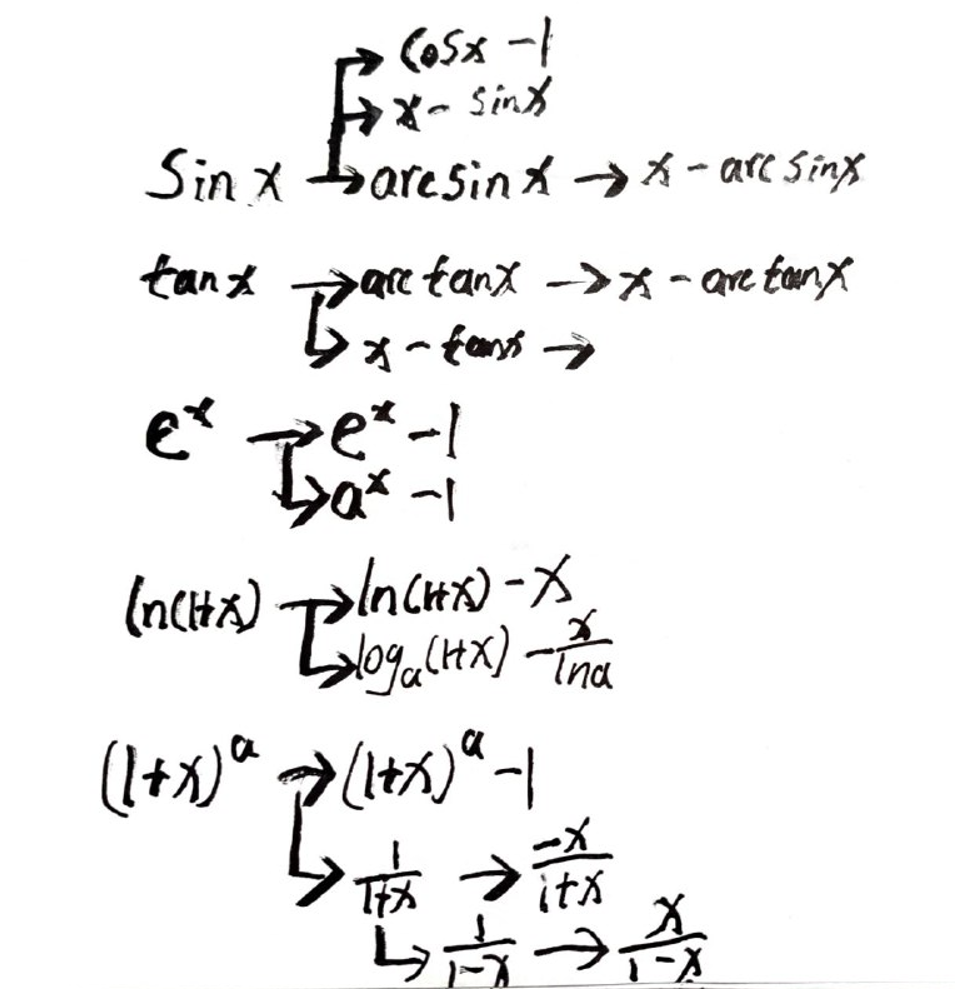 → cosx -1
→ x - sinx
Sin x → arcsin x → x - arcsinx
tanx → arctanx → x - arctanx
↳ x - tanx →
eˣ → eˣ -1
↳ aˣ -1
ln(1+x) → ln(1+x) - x
↳ logₐ(1+x) - x/lna
(1+x)ᵃ → (1+x)ᵃ -1
↳ 1/1+x → -x/1+x
↳ 1/1-x → x/1-x